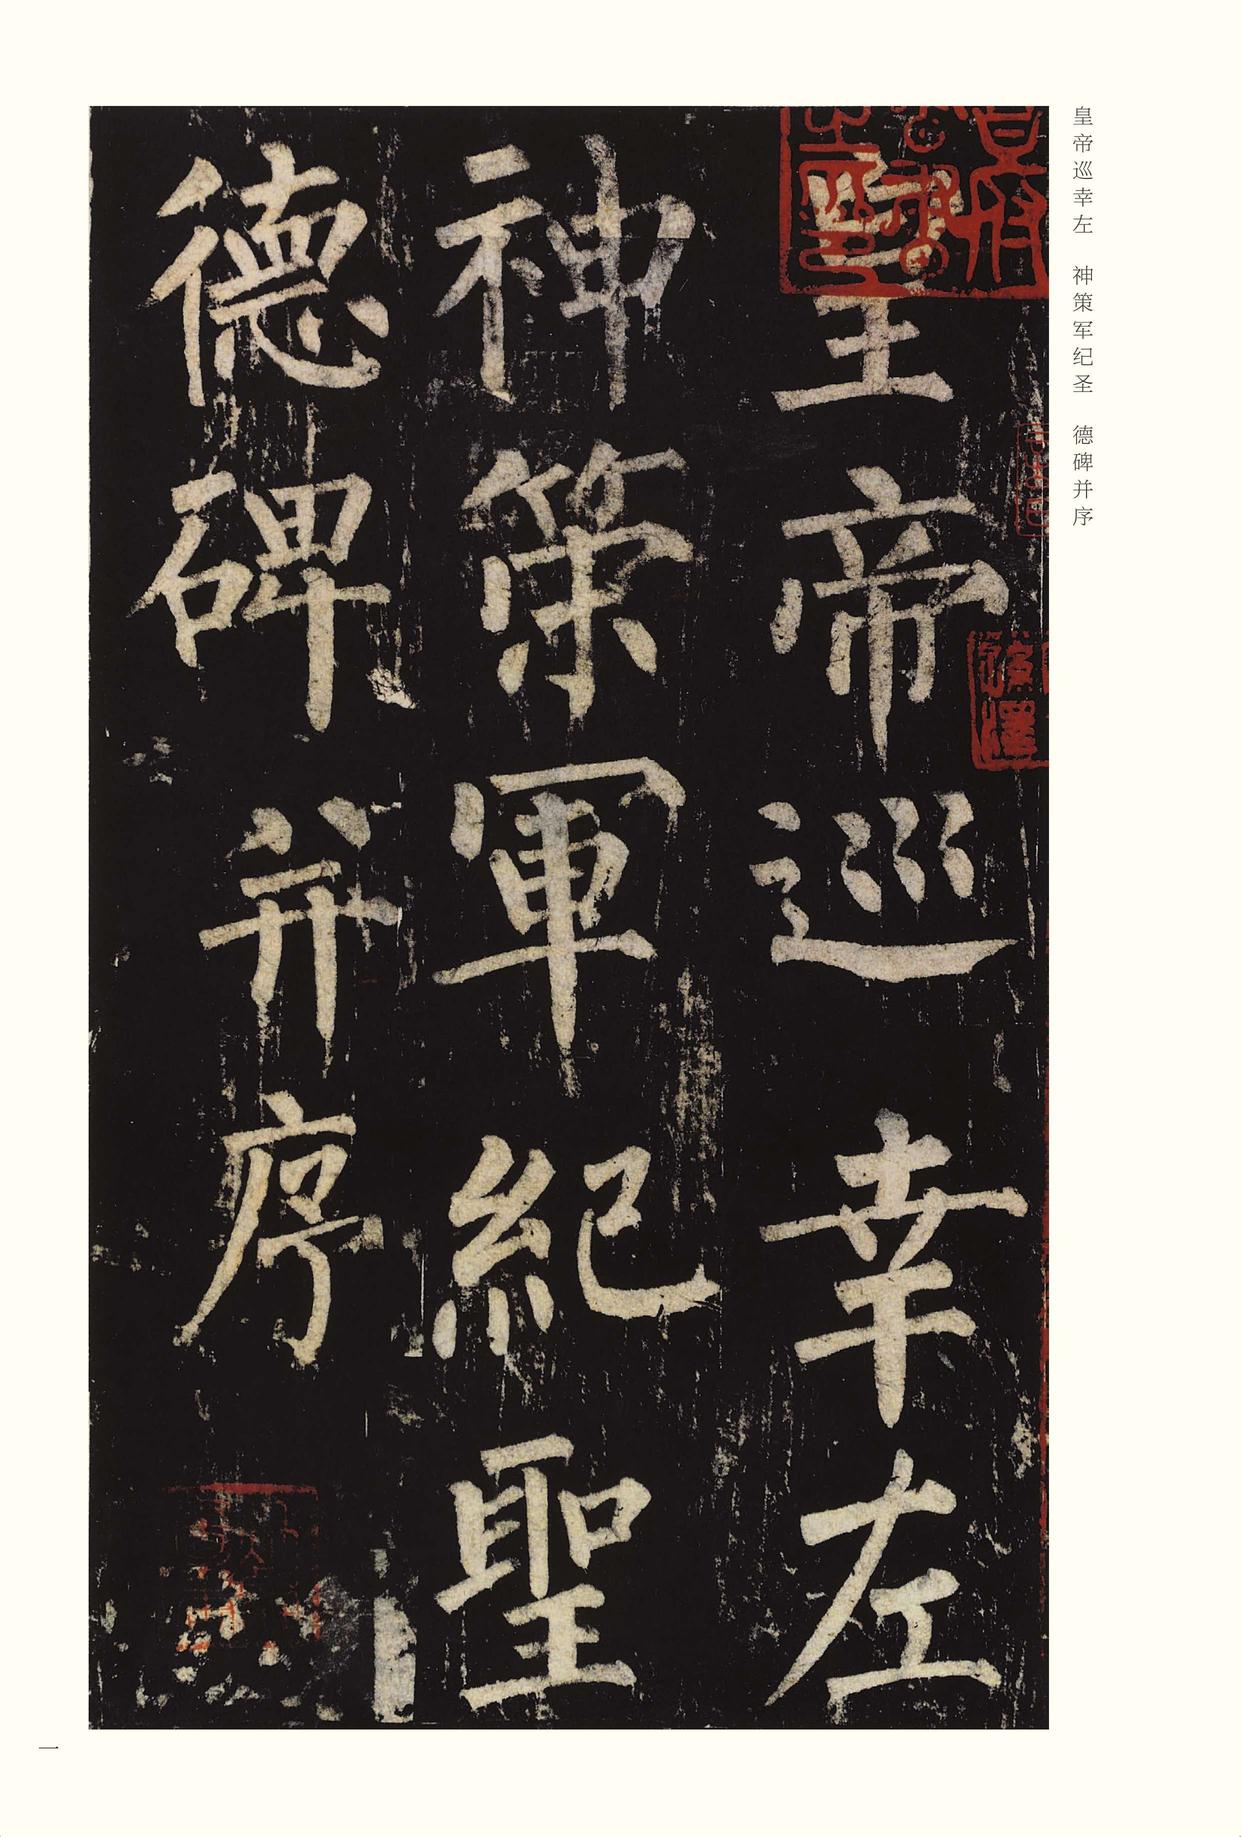 皇帝巡幸左　神策军纪圣　德碑并序
皇帝巡幸左
神策軍紀聖
德碑并序
一